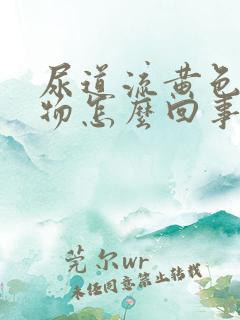 尿道流黄色
物怎麼回事
莞尔wr
未经同意禁止转载